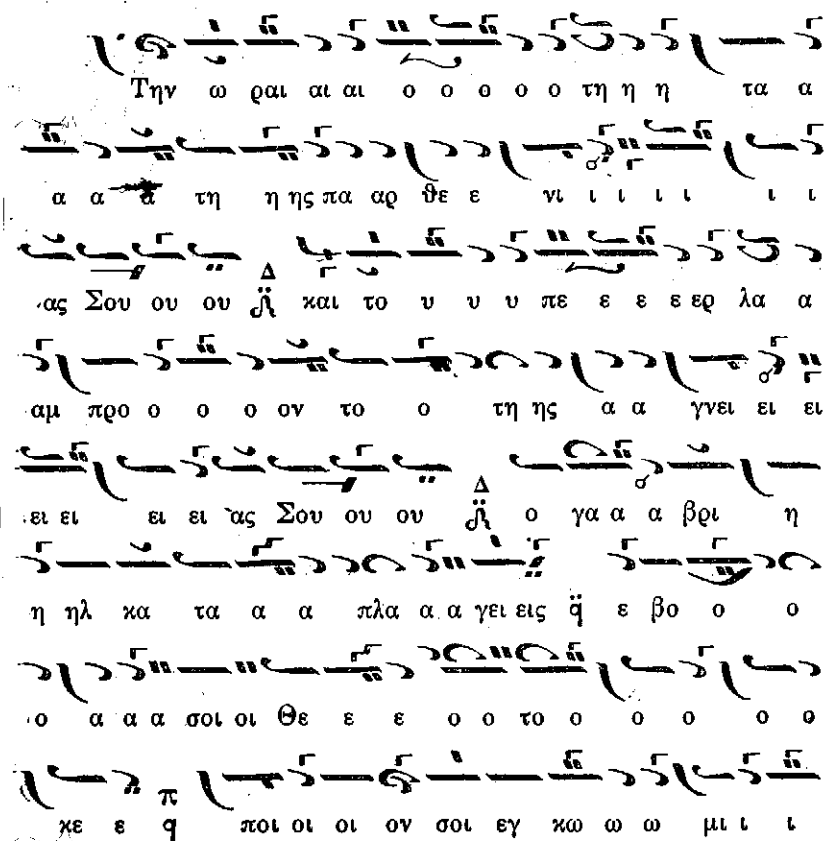 Την ω ραι αι αι ο ο ο ο ο τη η η τα α
α α α τη η ης πα αρ θε ε νι ι ι ι ι ι ι
ας Σου ου ου Δ και το υ υ υ πε ε ε ε ερ λα α
αμ προ ο ο ο ον το ο τη ης α α γνει ει ει
ει ει ει ει ας Σου ου ου Δ ο γα α α βρι η
η ηλ κα τα α α πλα α α γει εις q̈ ε βο ο ο
ο α α α σοι οι Θε ε ε ο ο το ο ο ο ο ο
κε ε π q ποι οι οι ον σοι εγ κω ω ω μι ι ι